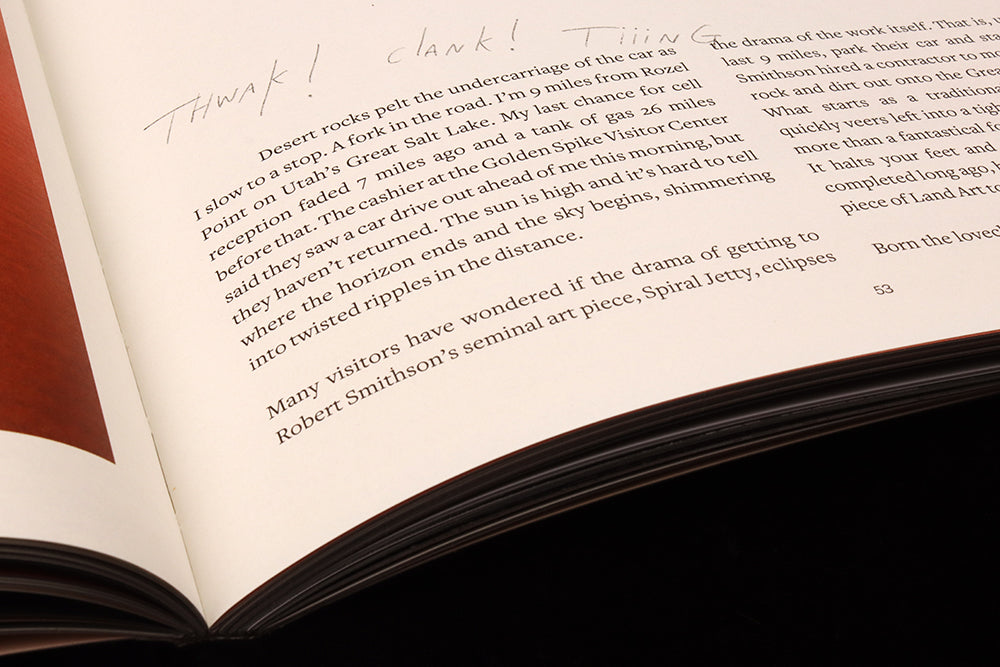 THWAK! CLANK! TiiiNG
Desert rocks pelt the undercarriage of the car as
I slow to a stop. A fork in the road. I'm 9 miles from Rozel
Point on Utah's Great Salt Lake. My last chance for cell
reception faded 7 miles ago and a tank of gas 26 miles
before that. The cashier at the Golden Spike Visitor Center
said they saw a car drive out ahead of me this morning, but
they haven't returned. The sun is high and it's hard to tell
where the horizon ends and the sky begins, shimmering
into twisted ripples in the distance.
Many visitors have wondered if the drama of getting to
Robert Smithson's seminal art piece, Spiral Jetty, eclipses
the drama of the work itself. That is,
last 9 miles, park their car and
Smithson hired a contractor to
rock and dirt out onto the
What starts as a
quickly veers left into a
more than a fantastical
It halts your feet and
completed long ago,
piece of Land Art
Born the
53